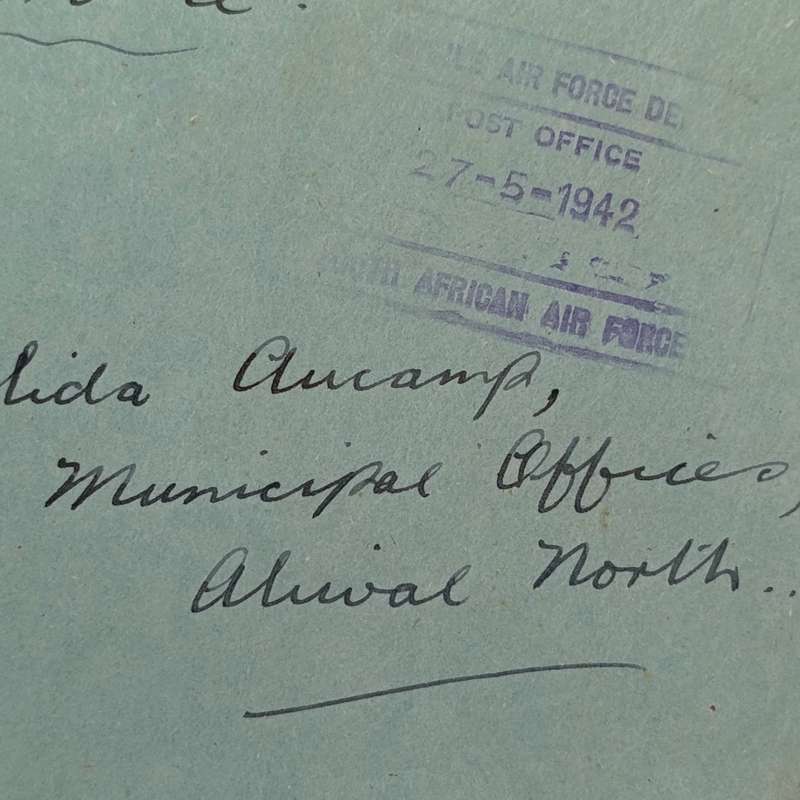 AIR FORCE
POST OFFICE
27-5-1942
SOUTH AFRICAN AIR FORCE
Aucamp,
Municipal Offices,
Aliwal North..